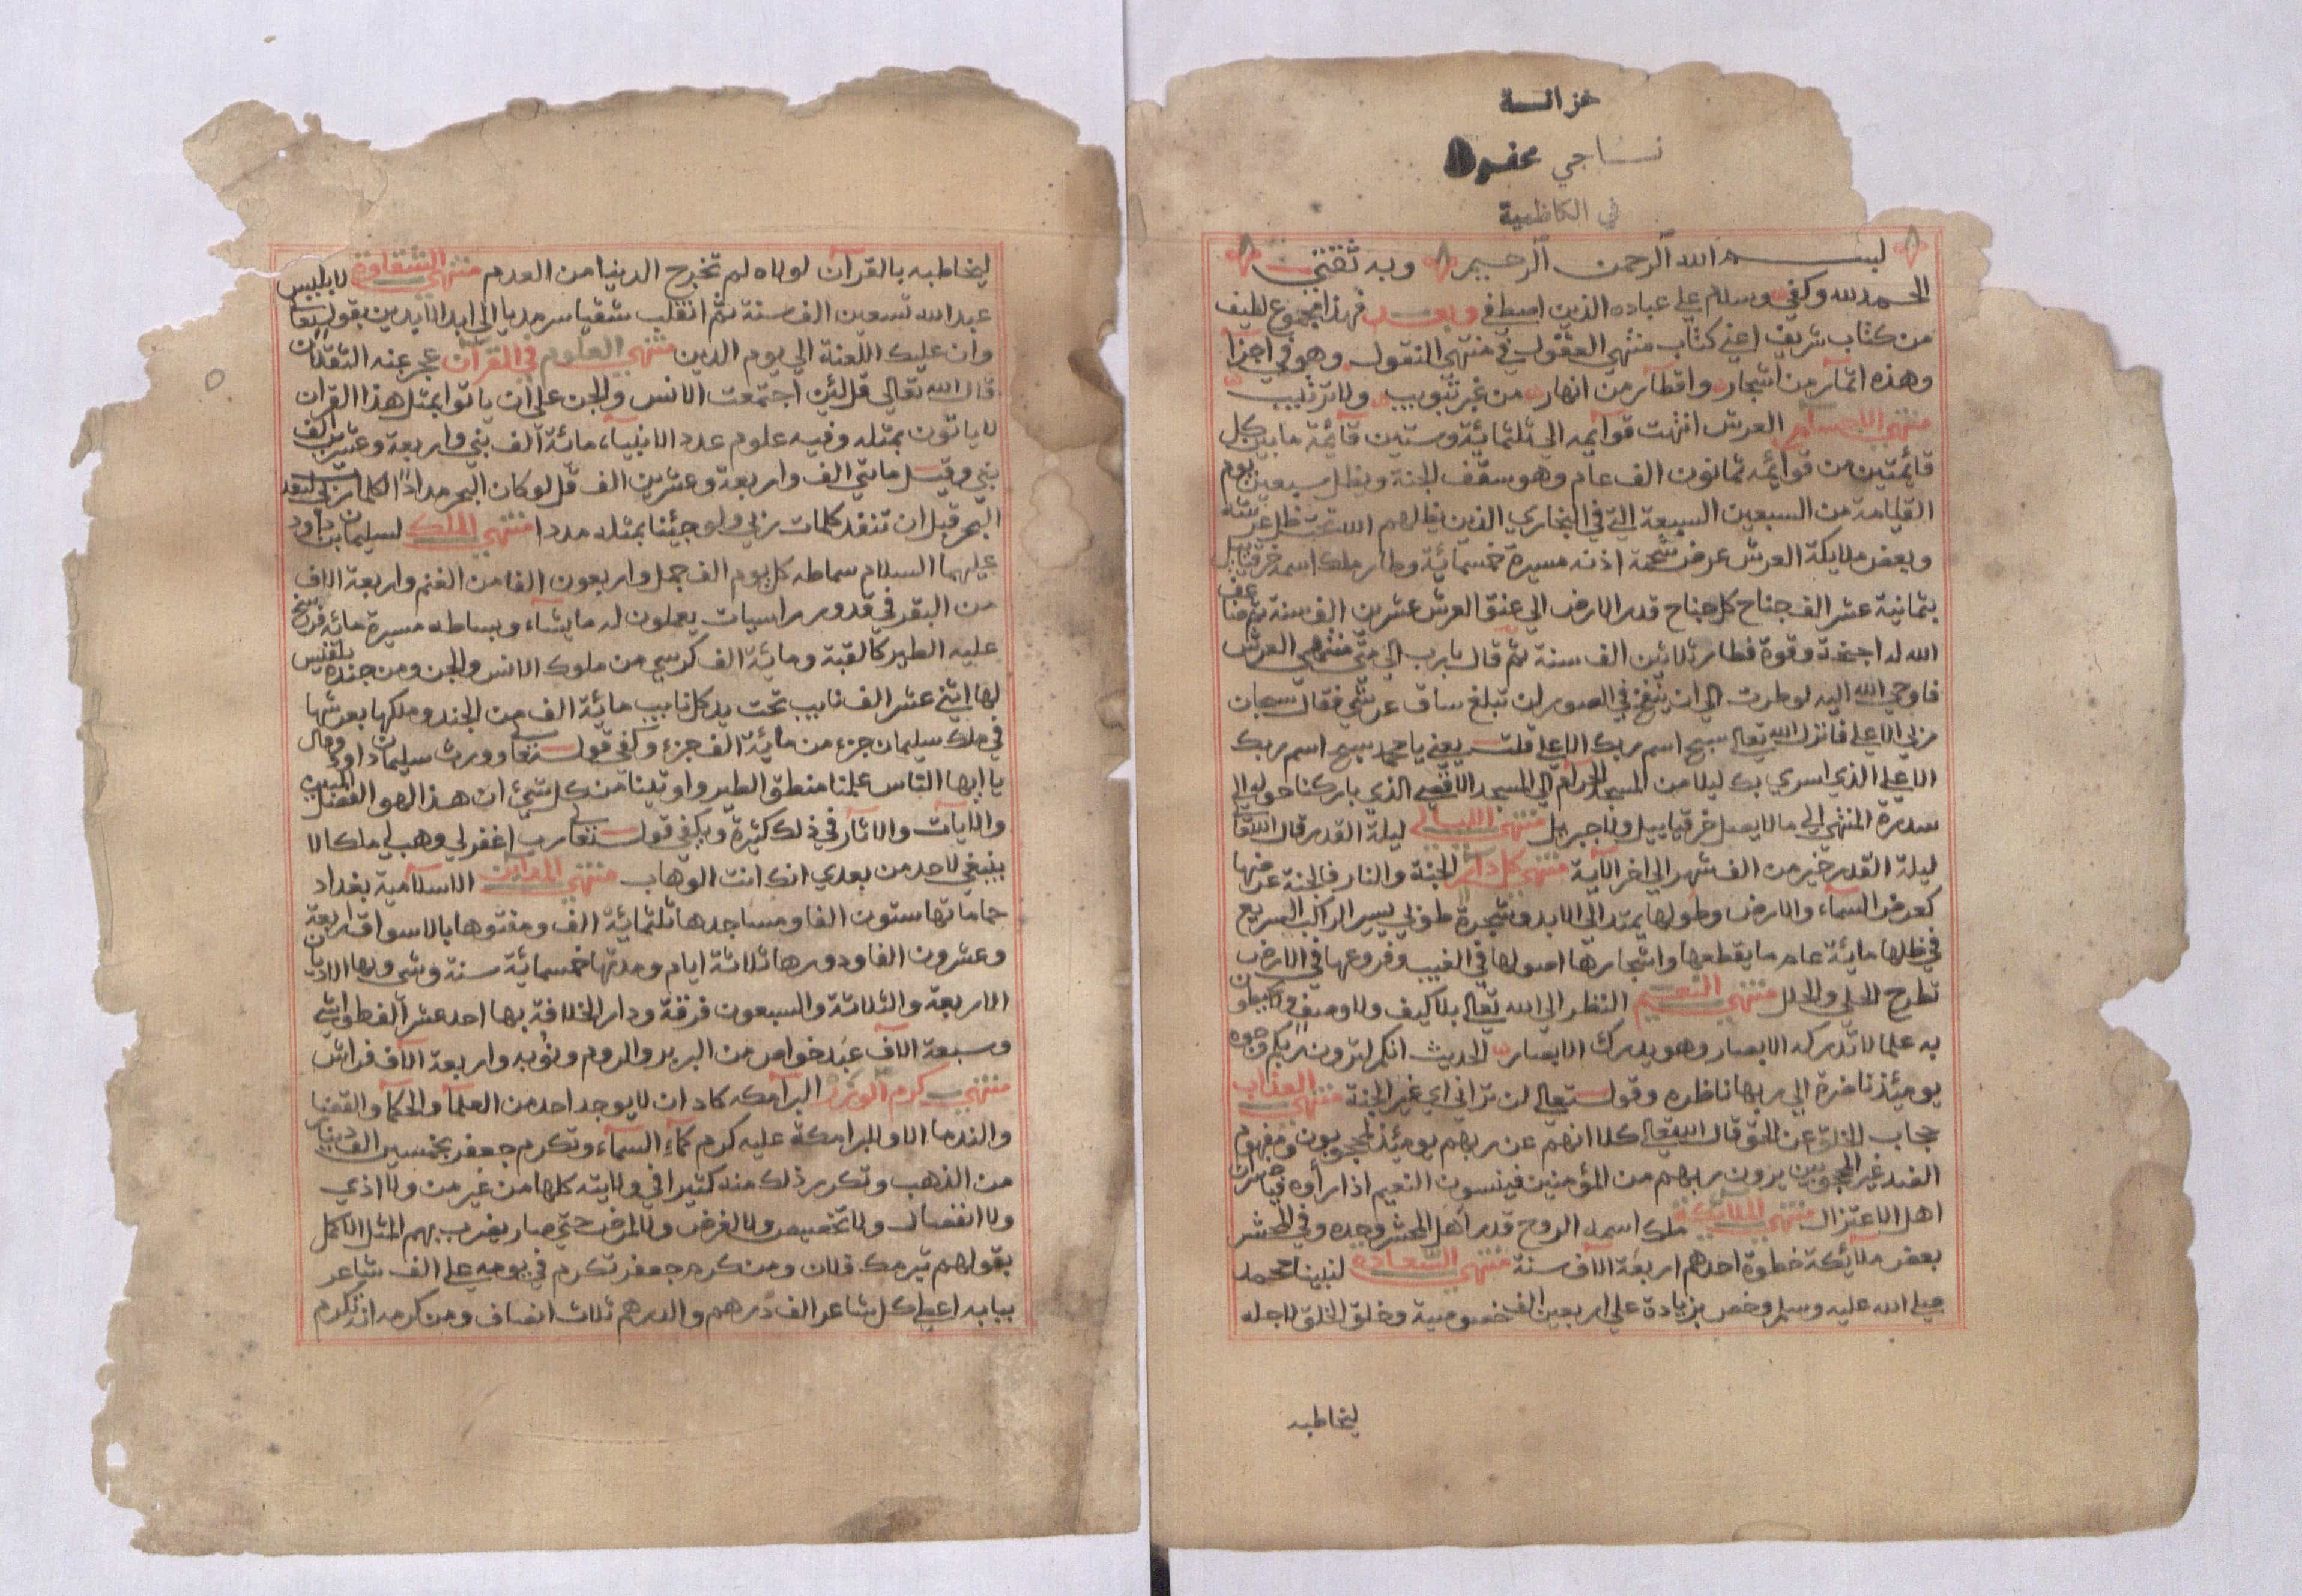 خزانة
نساجي محفوظ
في الكاظمية
بسم الله الرحمن الرحيم وبه ثقتي
الحمد لله وكفي وسلام علي عباده الذين اصطفي وبعد فهذا مجموع لطيف
من كتاب شريف اعني كتاب منتهي العقول في منتهي النقول وهو في اجزا
وهذه اثمار من اشجار واقطار من انهار من غير تبويب ولا ترتيب
منتهي الاجسام العرش انتهت قوايمه الي ثلثمائة وستين قائمة ما بين كل
قائمتين من قوائمه ثمانون الف عام وهو سقف الجنة ويظل سبعين يوم
القيامة من السبعين السبعة التي في البخاري الذين يظلهم الله تحت ظل عرشه
وبعض ملايكة العرش عرض شحمة اذنه مسيرة خمسمائة وطار ملك اسمه خرقيابيل
بثمانية عشر الف جناح كل جناح قدر الارض الي عنق العرش عشرين الف سنة ثم ضاعف
الله له اجنحة وقوة فطار ثلاثين الف سنة ثم قال يا رب الي متي منتهي العرش
فاوحي الله اليه لو طرت الي ان ينفخ في الصور لن تبلغ ساق عرشي فقال سبحان
ربي الاعلي فانزل الله تعالي سبح اسم ربك الاعلي قلت يعني يا محمد سبح اسم ربك
الاعلي الذي اسري بك ليلا من المسجد الحرام الي المسجد الاقصي الذي باركنا حوله الي
سدرة المنتهي الي ما لا يصل خرقياييل ولا جبريل منتهي الليالي ليلة القدر قال الله تعالي
ليلة القدر خير من الف شهر الي اخر الآية منتهي كل دار الجنة والنار فالجنة عرضها
كعرض السماء والارض وطولها يمتد الي الابد وشجرة طوبي يسير الراكب السريع
في ظلها مائة عام ما يقطعها واشجارها اصولها في الغيب وفروعها في الارض
تطرح الحلي والحلل منتهي النعيم النظر الي الله تعالي بلا كيف ولا وصف ولا يحيطون
به علما لا تدركه الابصار وهو يدرك الابصار الحديث انكم لترون ربكم وجوه
يومئذ ناضرة الي ربها ناظره وقوله تعالي لن تراني اي غير الجنة منتهي العذاب
حجاب الخلق عن الحق قال الله تعالي كلا انهم عن ربهم يومئذ لمحجوبون ومفهوم
الضد غير المحجوبين يرون ربهم من المؤمنين فينسون النعيم اذا رأوه فيا خسران
اهل الاعتزال منتهي الملائكة ملك اسمه الروح قدر اهل المحشر وحده وفي المحشر
بعض ملائكة خطوة احدهم اربعة الاف سنة منتهي السعاده لنبينا محمد
صلي الله عليه وسلم وخص بزيادة علي اربعين الف خصوصية وخلق الخلق لاجله
ليخاطبه
ليخاطبه بالقرآن لولاه لم تخرج الدنيا من العدم منتهي الشقاوة لابليس
عبد الله تسعين الف سنة ثم انقلب شقيا سرمديا الي ابد الآبدين بقوله تعالي
وان عليك اللعنة الي يوم الدين منتهي العلوم في القرآن عجز عنه الثقلان
قال الله تعالي قل لئن اجتمعت الانس والجن علي ان ياتوا بمثل هذا القران
لا ياتون بمثله وفيه علوم عدد الانبياء مائة الف نبي واربعة وعشرين الف
نبي وقيل مايتي الف واربعة وعشرين الف قل لو كان البحر مدادا لكلمات ربي لنفد
البحر قبل ان تنفد كلمات ربي ولو جئنا بمثله مددا منتهي الملك لسليمان بن داود
عليهما السلام سماطه كل يوم الف جمل واربعون الفا من الغنم واربعة الاف
من البقر في قدور راسيات يعملون له ما يشاء وبساطه مسيرة مائة فرسخ
عليه الطير كالقبة ومائة الف كرسي من ملوك الانس والجن ومن جنده بلقيس
لها اثني عشر الف نايب تحت يد كل نايب مائة الف من الجند وملكها بعرشها
في ملك سليمان جزء من مائة الف جزء وكفي قوله تعالي وورث سليمان داود وقال
يا ايها الناس علمنا منطق الطير واوتينا من كل شيء ان هذا لهو الفضل المبين
والايات والاثار في ذلك كثيرة ويكفي قوله تعالي رب اغفر لي وهب لي ملكا لا
ينبغي لاحد من بعدي انك انت الوهاب منتهي المداين الاسلامية بغداد
حماماتها ستون الفا ومساجدها ثلثمائة الف ومفتوها بالاسواق اربعة
وعشرون الفا ودورها ثلاثة ايام ومدتها خمسمائة سنة وشي وبها الاديان
الاربعة والثلاثة والسبعون فرقة ودار الخلافة بها احد عشر الف طواشي
وسبعة الاف عبد خواص من البربر والروم ونوبه واربعة الاف فراش
منتهي كرم الوزرا البرامكه كاد ان لا يوجد احد من العلما والحكما والقضا
والندما الا وللبرامكة عليه كرم كماء السماء وتكرم جعفر بخمسين الف دينار
من الذهب وتكرر ذلك منه كثيرا في ولايته كلها من غير من ولا اذي
ولا انفصال ولا تخصيص ولا لغرض ولا لمرض حتي صار يضرب بهم المثل الاكمل
بقولهم تبرمك فلان ومن كرم جعفر تكرم في يومه علي الف شاعر
ببابه اعطي كل شاعر الف درهم والدرهم ثلاث انصاف ومن كرمه انه تكرم